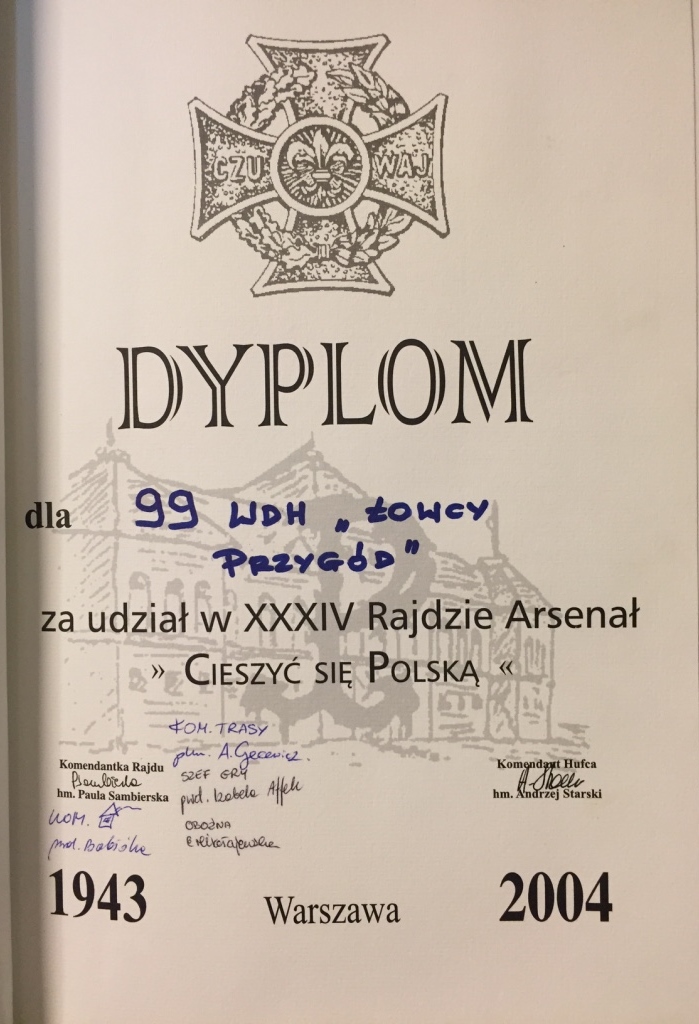 CZU WAJ
DYPLOM
dla 99 WDH „ŁOWCY
PRZYGÓD”
za udział w XXXIV Rajdzie Arsenał
» CIESZYĆ SIĘ POLSKĄ «
KOM. TRASY
phm. A. Gecewicz.
SZEF GRY
pwd. Izabela Affek
OBOŹNA
Komendantka Rajdu
hm. Paula Sambierska
KOM.
Komendant Hufca
hm. Andrzej Starski
1943 Warszawa 2004